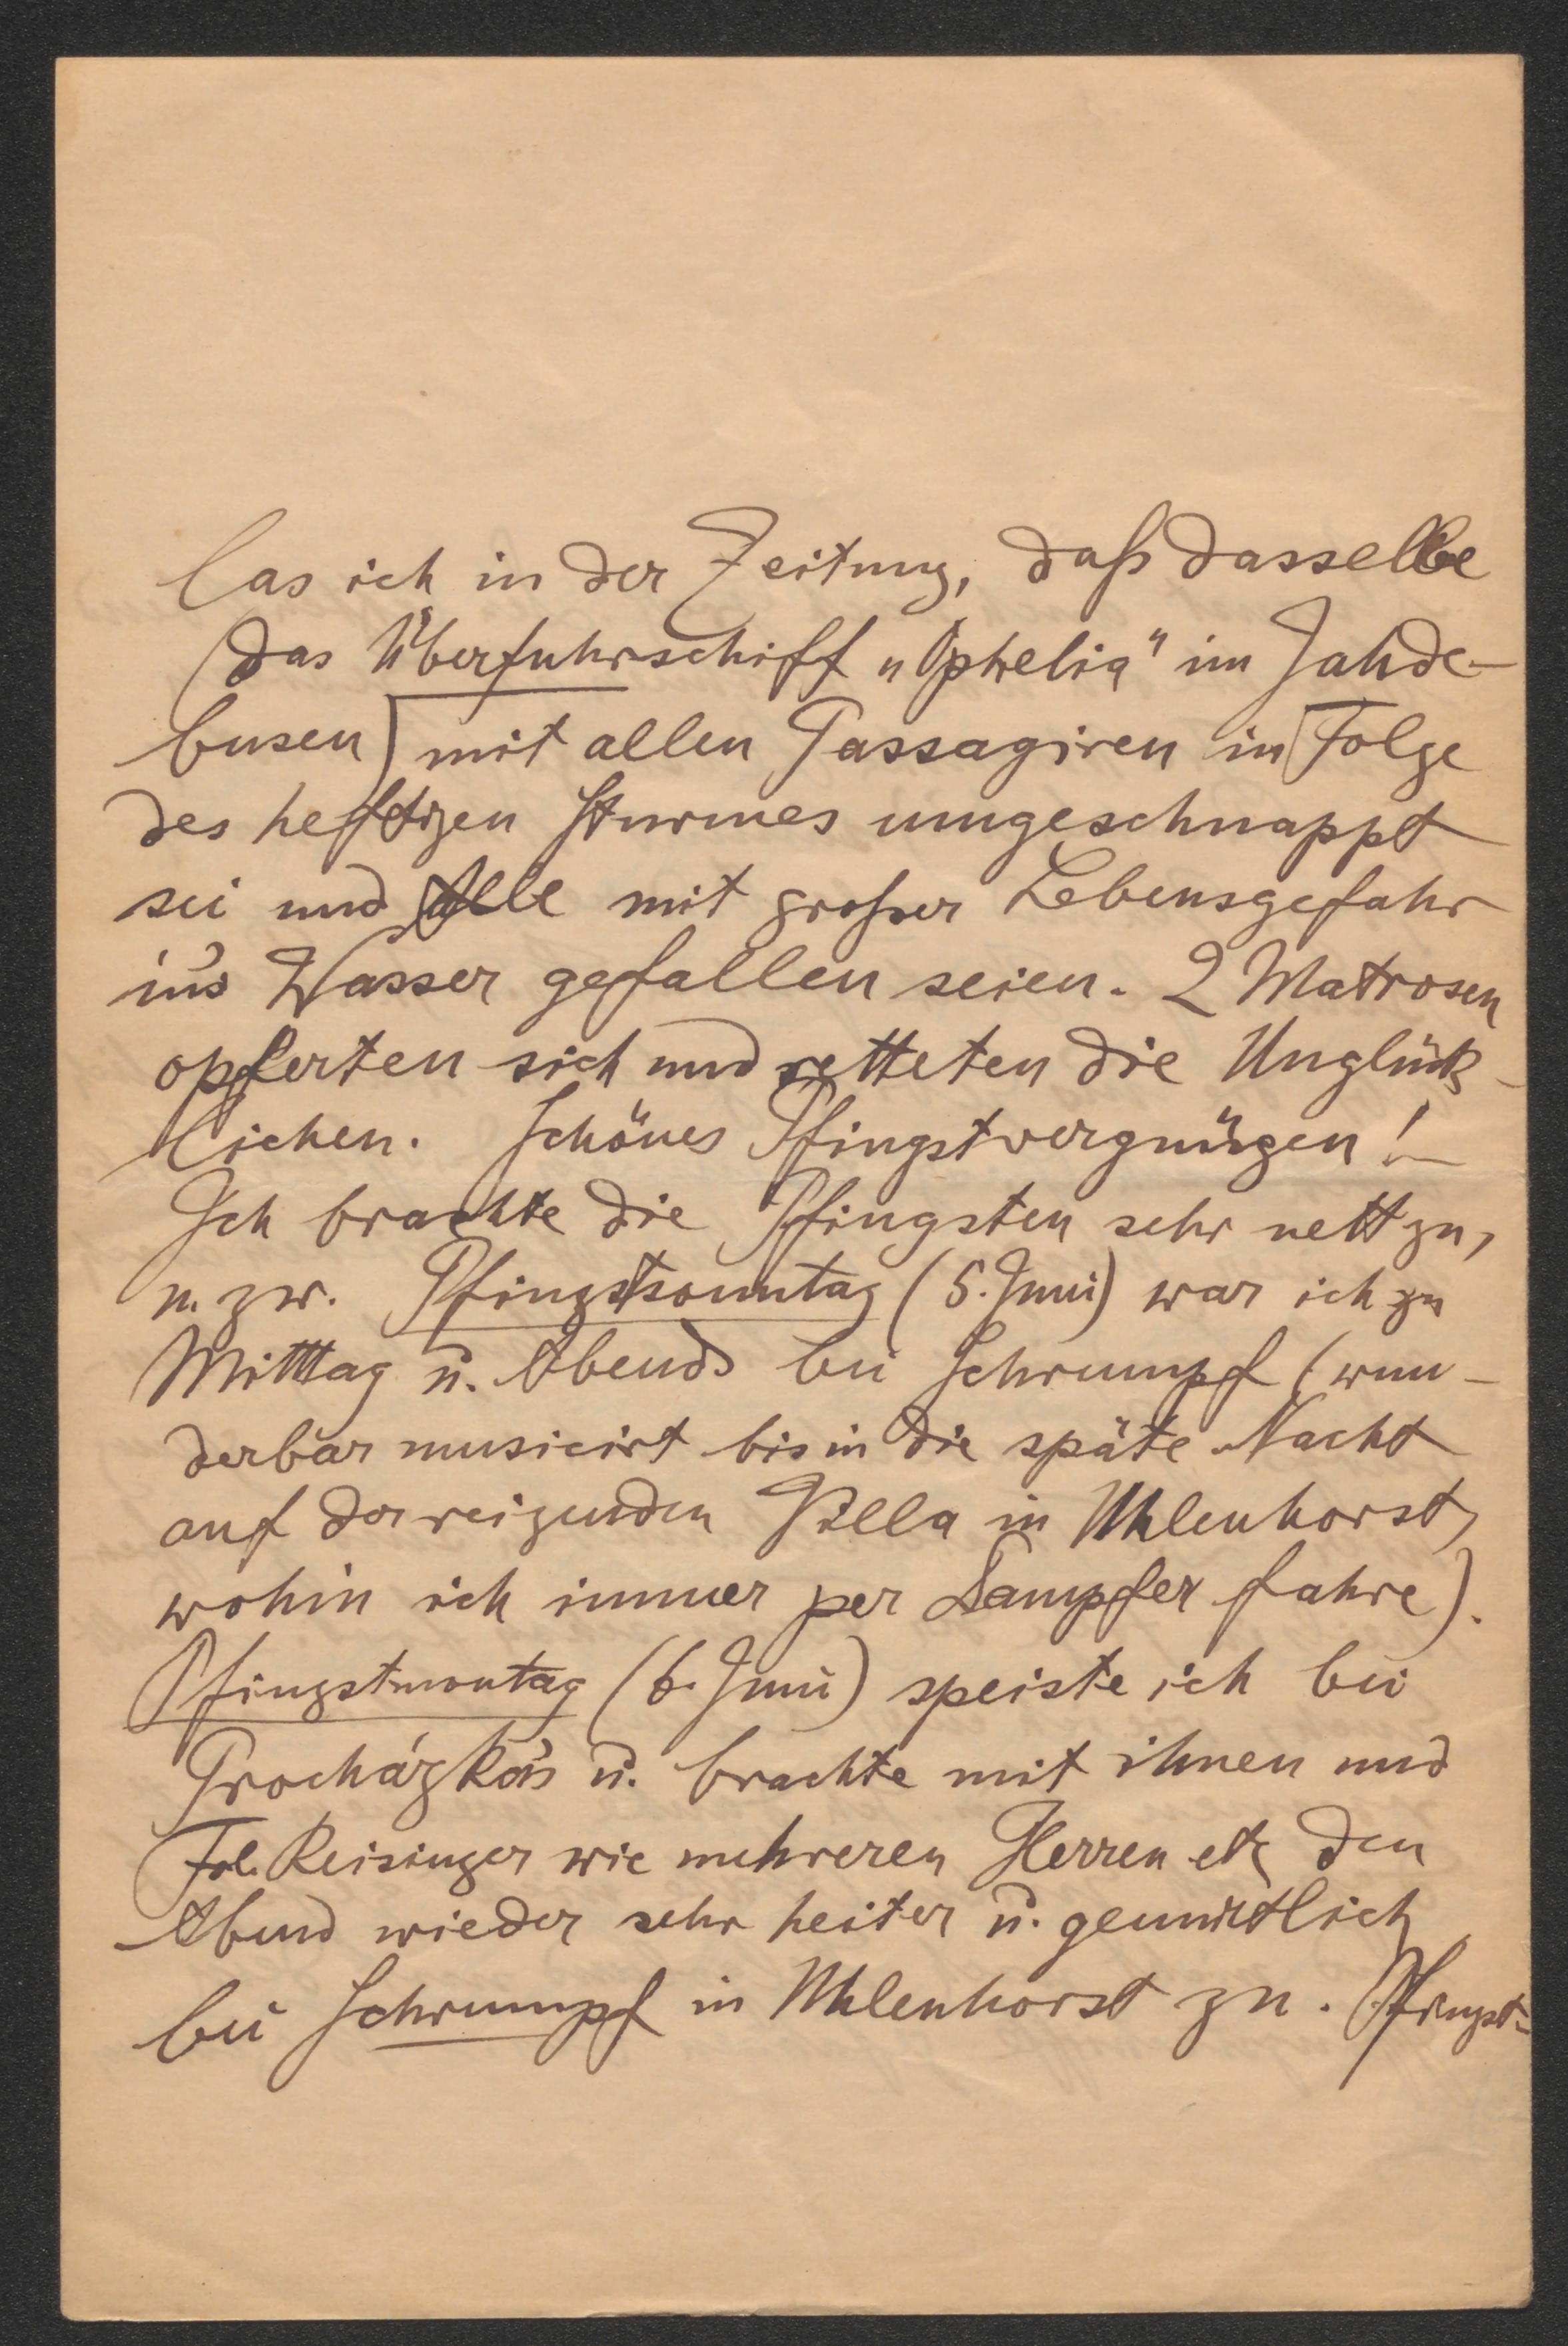 las ich in der Zeitung, daß dasselbe
(das Überfuhrschiff „Ophelia" im Jahde-
busen) mit allen Passagiren in Folge
des heftigen Sturmes umgeschnappt
sei und Alle mit großer Lebensgefahr
in's Wasser gefallen seien. 2 Matrosen
opferten sich und retteten die Unglück-
lichen. Schönes Pfingstvergnügen! –
Ich brachte die Pfingsten sehr nett zu,
u. zw. Pfingstsonntag (5. Juni) war ich zu
Mittag u. Abends bei Schrumpf (wun-
derbar musicirt bis in die späte Nacht
auf der reizenden Villa in Uhlenhorst,
wohin ich immer per Dampfer fahre).
Pfingstmontag (6. Juni) speiste ich bei
Procházka's u. brachte mit ihnen und
Frl. Reisinger wie mehreren Herren etz den
Abend wieder sehr heiter u. gemütlich
bei Schrumpf in Uhlenhorst zu. Pfingst-